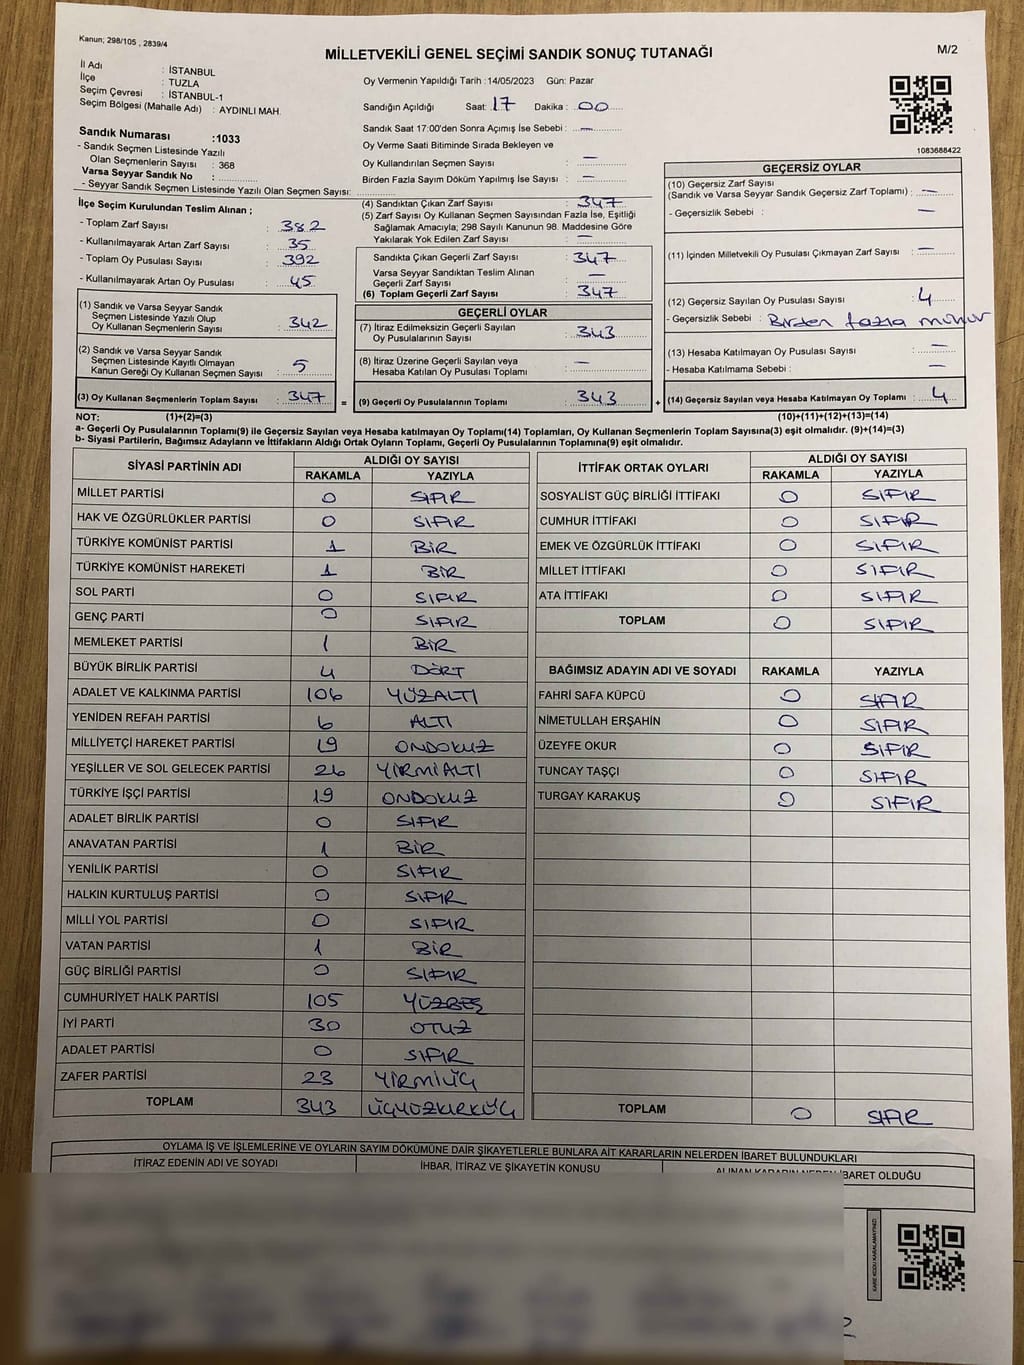 Kanun; 298/105 , 2839/4
MİLLETVEKİLİ GENEL SEÇİMİ SANDIK SONUÇ TUTANAĞI
M/2
İl Adı : İSTANBUL
İlçe : TUZLA
Seçim Çevresi : İSTANBUL-1
Seçim Bölgesi (Mahalle Adı) : AYDINLI MAH.
Oy Vermenin Yapıldığı Tarih :14/05/2023 Gün: Pazar
Sandığın Açıldığı Saat: 17 Dakika : 00
Sandık Saat 17:00'den Sonra Açımış İse Sebebi : —
Oy Verme Saati Bitiminde Sırada Bekleyen ve
Oy Kullandırılan Seçmen Sayısı : —
Birden Fazla Sayım Döküm Yapılmış İse Sayısı : —
Sandık Numarası :1033
- Sandık Seçmen Listesinde Yazılı
Olan Seçmenlerin Sayısı : 368
Varsa Seyyar Sandık No :
- Seyyar Sandık Seçmen Listesinde Yazılı Olan Seçmen Sayısı:
1083688422
İlçe Seçim Kurulundan Teslim Alınan ;
- Toplam Zarf Sayısı : 382
- Kullanılmayarak Artan Zarf Sayısı : 35
- Toplam Oy Pusulası Sayısı : 392
- Kullanılmayarak Artan Oy Pusulası : 45
(1) Sandık ve Varsa Seyyar Sandık
Seçmen Listesinde Yazılı Olup
Oy Kullanan Seçmenlerin Sayısı : 342
(2) Sandık ve Varsa Seyyar Sandık
Seçmen Listesinde Kayıtlı Olmayan
Kanun Gereği Oy Kullanan Seçmen Sayısı : 5
(3) Oy Kullanan Seçmenlerin Toplam Sayısı : 347 =
(4) Sandıktan Çıkan Zarf Sayısı : 347
(5) Zarf Sayısı Oy Kullanan Seçmen Sayısından Fazla İse, Eşitliği
Sağlamak Amacıyla; 298 Sayılı Kanunun 98. Maddesine Göre
Yakılarak Yok Edilen Zarf Sayısı : —
Sandıkta Çıkan Geçerli Zarf Sayısı : 347
Varsa Seyyar Sandıktan Teslim Alınan
Geçerli Zarf Sayısı : —
(6) Toplam Geçerli Zarf Sayısı : 347
GEÇERLİ OYLAR
(7) İtiraz Edilmeksizin Geçerli Sayılan
Oy Pusulalarının Sayısı : 343
(8) İtiraz Üzerine Geçerli Sayılan veya
Hesaba Katılan Oy Pusulası Toplamı : —
(9) Geçerli Oy Pusulalarının Toplamı : 343 +
GEÇERSİZ OYLAR
(10) Geçersiz Zarf Sayısı
(Sandık ve Varsa Seyyar Sandık Geçersiz Zarf Toplamı) : —
- Geçersizlik Sebebi : —
(11) İçinden Milletvekili Oy Pusulası Çıkmayan Zarf Sayısı : —
(12) Geçersiz Sayılan Oy Pusulası Sayısı : 4
- Geçersizlik Sebebi : Birden fazla mühür
(13) Hesaba Katılmayan Oy Pusulası Sayısı : —
- Hesaba Katılmama Sebebi : —
(14) Geçersiz Sayılan veya Hesaba Katılmayan Oy Toplamı : 4
NOT: (1)+(2)=(3) (10)+(11)+(12)+(13)=(14)
a- Geçerli Oy Pusulalarının Toplamı(9) ile Geçersiz Sayılan veya Hesaba katılmayan Oy Toplamı(14) Toplamları, Oy Kullanan Seçmenlerin Toplam Sayısına(3) eşit olmalıdır. (9)+(14)=(3)
b- Siyasi Partilerin, Bağımsız Adayların ve İttifakların Aldığı Ortak Oyların Toplamı, Geçerli Oy Pusulalarının Toplamına(9) eşit olmalıdır.
SİYASİ PARTİNİN ADI ALDIĞI OY SAYISI
RAKAMLA YAZIYLA
MİLLET PARTİSİ 0 SIFIR
HAK VE ÖZGÜRLÜKLER PARTİSİ 0 SIFIR
TÜRKİYE KOMÜNİST PARTİSİ 1 BİR
TÜRKİYE KOMÜNİST HAREKETİ 1 BİR
SOL PARTİ 0 SIFIR
GENÇ PARTİ 0 SIFIR
MEMLEKET PARTİSİ 1 BİR
BÜYÜK BİRLİK PARTİSİ 4 DÖRT
ADALET VE KALKINMA PARTİSİ 106 YÜZALTI
YENİDEN REFAH PARTİSİ 6 ALTI
MİLLİYETÇİ HAREKET PARTİSİ 19 ONDOKUZ
YEŞİLLER VE SOL GELECEK PARTİSİ 26 YİRMİALTI
TÜRKİYE İŞÇİ PARTİSİ 19 ONDOKUZ
ADALET BİRLİK PARTİSİ 0 SIFIR
ANAVATAN PARTİSİ 1 BİR
YENİLİK PARTİSİ 0 SIFIR
HALKIN KURTULUŞ PARTİSİ 0 SIFIR
MİLLİ YOL PARTİSİ 0 SIFIR
VATAN PARTİSİ 1 BİR
GÜÇ BİRLİĞİ PARTİSİ 0 SIFIR
CUMHURİYET HALK PARTİSİ 105 YÜZBEŞ
İYİ PARTİ 30 OTUZ
ADALET PARTİSİ 0 SIFIR
ZAFER PARTİSİ 23 YİRMİÜÇ
TOPLAM 343 ÜÇYÜZKIRKÜÇ
İTTİFAK ORTAK OYLARI ALDIĞI OY SAYISI
RAKAMLA YAZIYLA
SOSYALİST GÜÇ BİRLİĞİ İTTİFAKI 0 SIFIR
CUMHUR İTTİFAKI 0 SIFIR
EMEK VE ÖZGÜRLÜK İTTİFAKI 0 SIFIR
MİLLET İTTİFAKI 0 SIFIR
ATA İTTİFAKI 0 SIFIR
TOPLAM 0 SIFIR
BAĞIMSIZ ADAYIN ADI VE SOYADI RAKAMLA YAZIYLA
FAHRİ SAFA KÜPCÜ 0 SIFIR
NİMETULLAH ERŞAHİN 0 SIFIR
ÜZEYFE OKUR 0 SIFIR
TUNCAY TAŞÇI 0 SIFIR
TURGAY KARAKUŞ 0 SIFIR
TOPLAM 0 SIFIR
OYLAMA İŞ VE İŞLEMLERİNE VE OYLARIN SAYIM DÖKÜMÜNE DAİR ŞİKAYETLERLE BUNLARA AİT KARARLARIN NELERDEN İBARET BULUNDUKLARI
İTİRAZ EDENİN ADI VE SOYADI İHBAR, İTİRAZ VE ŞİKAYETİN KONUSU ALINAN KARARIN NEDEN İBARET OLDUĞU
KARE KODU KARALAMAYINIZ!